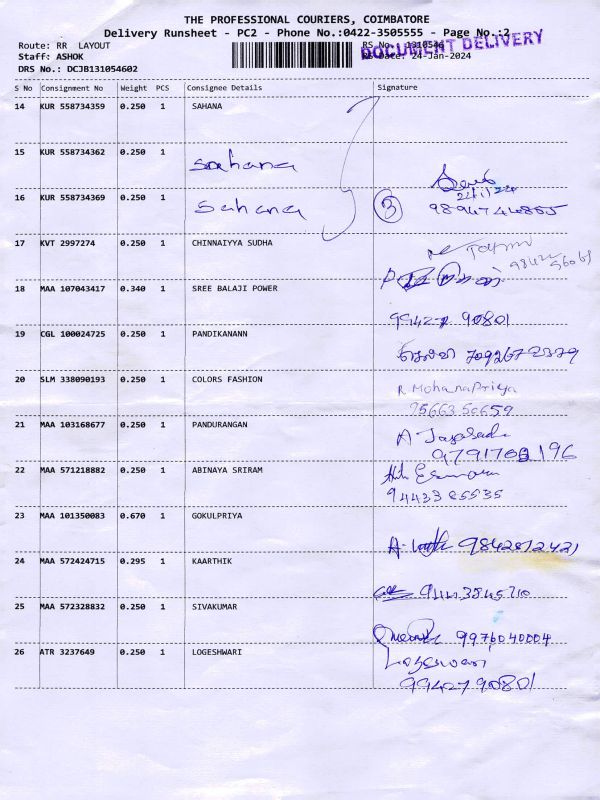 THE PROFESSIONAL COURIERS, COIMBATORE
Delivery Runsheet - PC2 - Phone No.:0422-3505555 - Page No.:2
Route: RR LAYOUT
RS No.: 1310546
DOCUMENT DELIVERY
Staff: ASHOK
RS Date: 24-Jan-2024
DRS No.: DCJB131054602
S No Consignment No Weight PCS Consignee Details Signature
14 KUR 558734359 0.250 1 SAHANA
15 KUR 558734362 0.250 1 Sahana
16 KUR 558734369 0.250 1 Sahana 3
17 KVT 2997274 0.250 1 CHINNAIYYA SUDHA
18 MAA 107043417 0.340 1 SREE BALAJI POWER
99427 90801
19 CGL 100024725 0.250 1 PANDIKANANN
20 SLM 338090193 0.250 1 COLORS FASHION R Mohanapriya
21 MAA 103168677 0.250 1 PANDURANGAN
22 MAA 571218882 0.250 1 ABINAYA SRIRAM
23 MAA 101350083 0.670 1 GOKULPRIYA
24 MAA 572424715 0.295 1 KAARTHIK
25 MAA 572328832 0.250 1 SIVAKUMAR
9976040004
26 ATR 3237649 0.250 1 LOGESHWARI Logeswari
9942790801